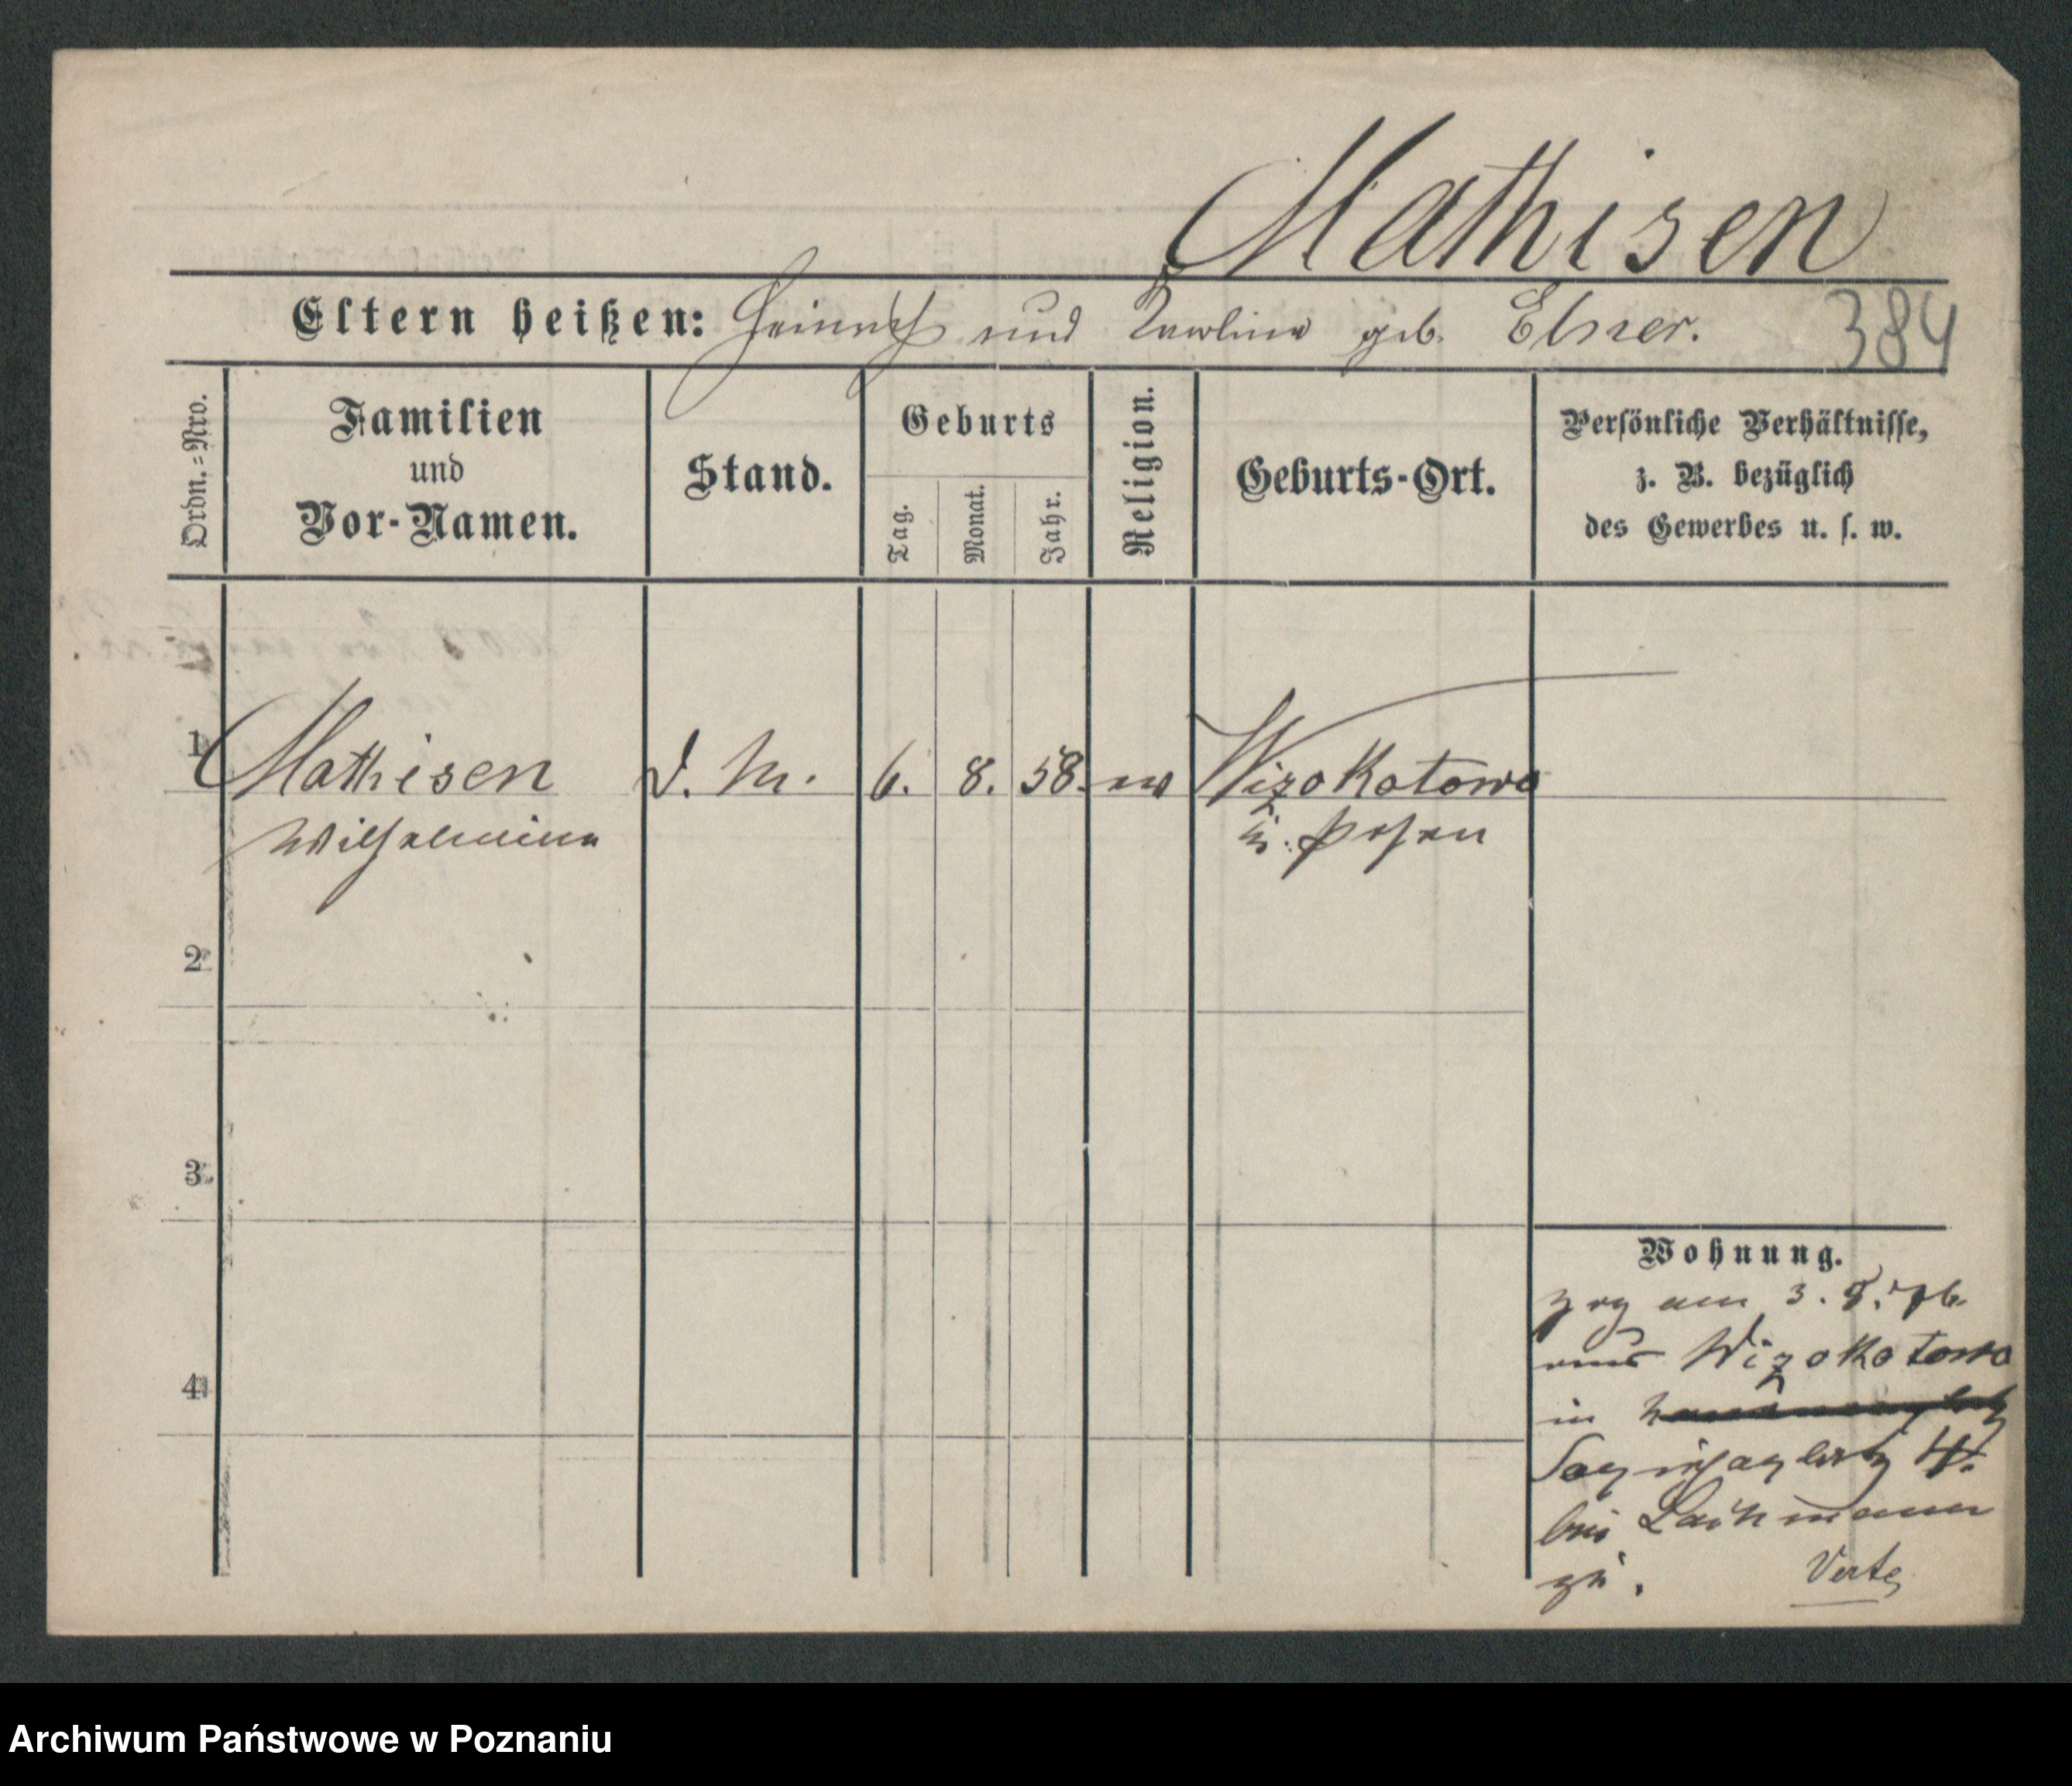 Mathisen
Eltern heißen: Heinrich und Pauline geb. Elsner.
384
Ordn.=Nro.
Familien
und
Vor-Namen.
Stand.
Geburts
Tag.
Monat.
Jahr.
Religion.
Geburts-Ort.
Persönliche Verhältnisse,
z. B. bezüglich
des Gewerbes u. s. w.
1 Mathisen d. M. 6. 8. 58. ev Wizokotowo
Wilhelmine b. Posen
2
3
4
Wohnung.
zog am 3. 8. 76.
aus Wizokotowo
in
4.
bei Lachmann
zu.
Verte
Archiwum Państwowe w Poznaniu